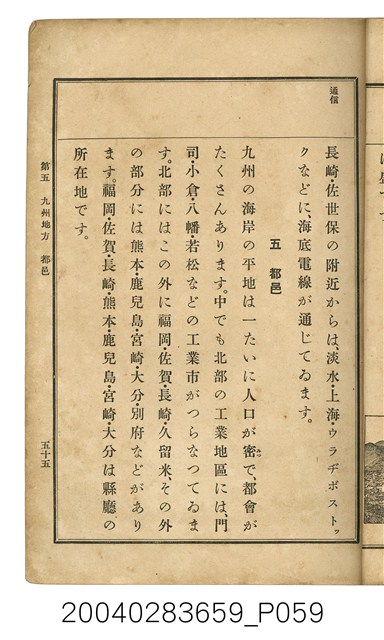 通信
長崎・佐世保の附近からは、淡水・上海・ウラヂボストッ
クなどに、海底電線が通じてゐます。
五 都邑
九州の海岸の平地は一たいに人口が密で、都會が
たくさんあります。中でも北部の工業地區には、門
司・小倉・八幡・若松などの工業市がつらなつてゐま
す。北部にはこの外に福岡・佐賀・長崎・久留米、その外
の部分には熊本・鹿兒島・宮崎・大分・別府などがあり
ます。福岡・佐賀・長崎・熊本・鹿兒島・宮崎・大分は縣廳の
所在地です。
第五 九州地方 都邑
五十五
20040283659_P059